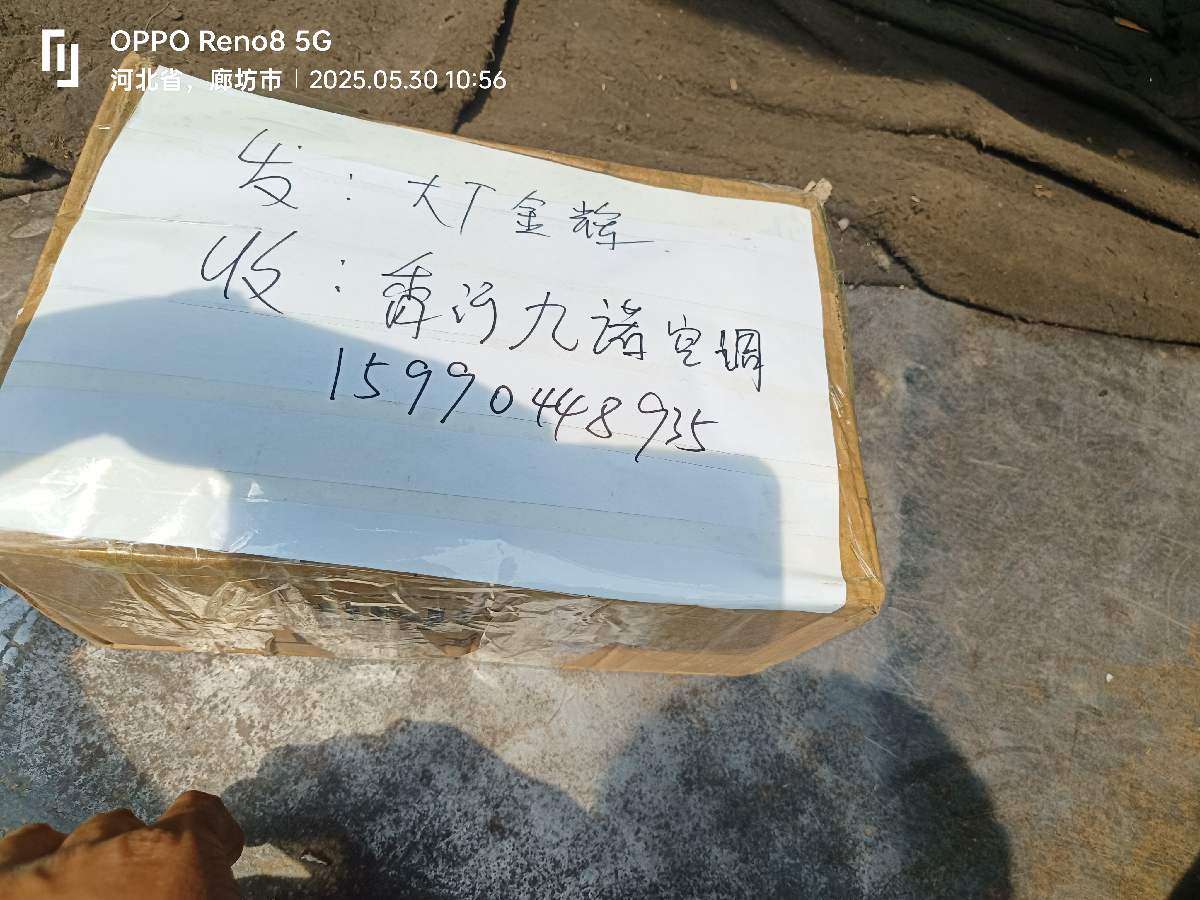 OPPO Reno8 5G
河北省，廊坊市 | 2025.05.30 10:56
发：大丁金辉
收：香河九诺空调
15990448935